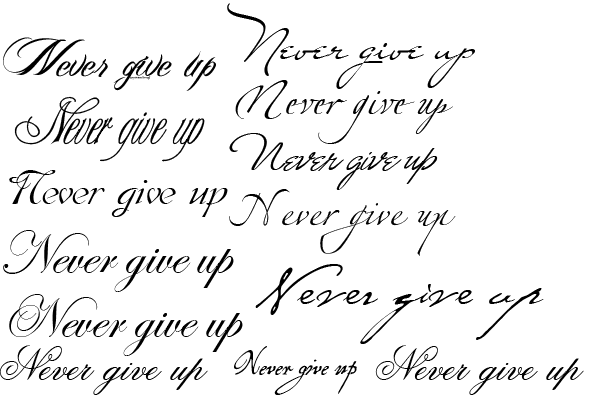 Never give up
Never give up
Never give up
Never give up
Never give up
Never give up
Never give up
Never give up
Never give up
Never give up
Never give up
Never give up
Never give up